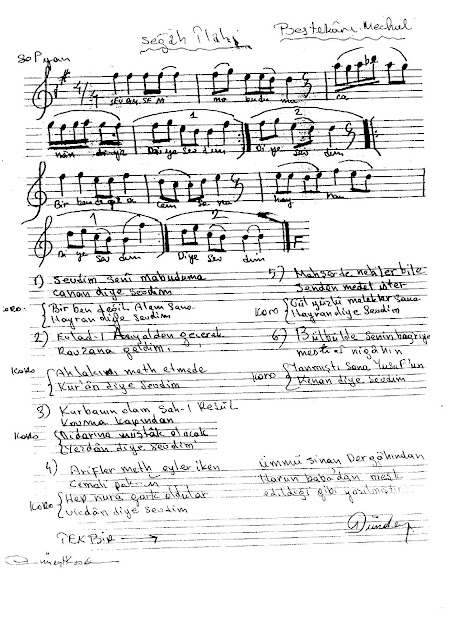 Segâh İlahi
Bestekârı: Mechul
Sofyan
4/4
SEV DİM SE Nİ ma budu ma ca
nân diye Diye sev dim Di ye sev dim
1 2
Bir ben değil a lem sa na hay ran
1 2
Di ye sev dim Diye sev dim
F
1) Sevdim seni mabuduma
canan diye sevdim
KORO
Bir ben değil Alem sana
Hayran diye Sevdim
2) Evlad-ı Ayalden geçerek
Ravzana geldim.
KORO
Ahlakını meth etmede
Kur'ân diye Sevdim
3) Kurbanın olam Şah-ı Resûl
Kovma kapından
KORO
Didarına müştâk olacak
Yezdân diye sevdim
4) Arifler meth eyler iken
Cemali pâkin
KORO
Hep nura gark oldular
vicdân diye Sevdim
TEKBİR
5) Mahşerde nebiler bile
Senden medet ister
KORO
Gül yüzlü melekler sana
Hayran diye Sevdim
6) Bülbülde Senin bağrı
mesti nigâhın
KORO
Yanmıştı Sana Yusuf'un
Kenan diye Sevdim
ümmü sinan Dergâhından
Harun baba'dan meşk
edildiği gibi yazılmıştır